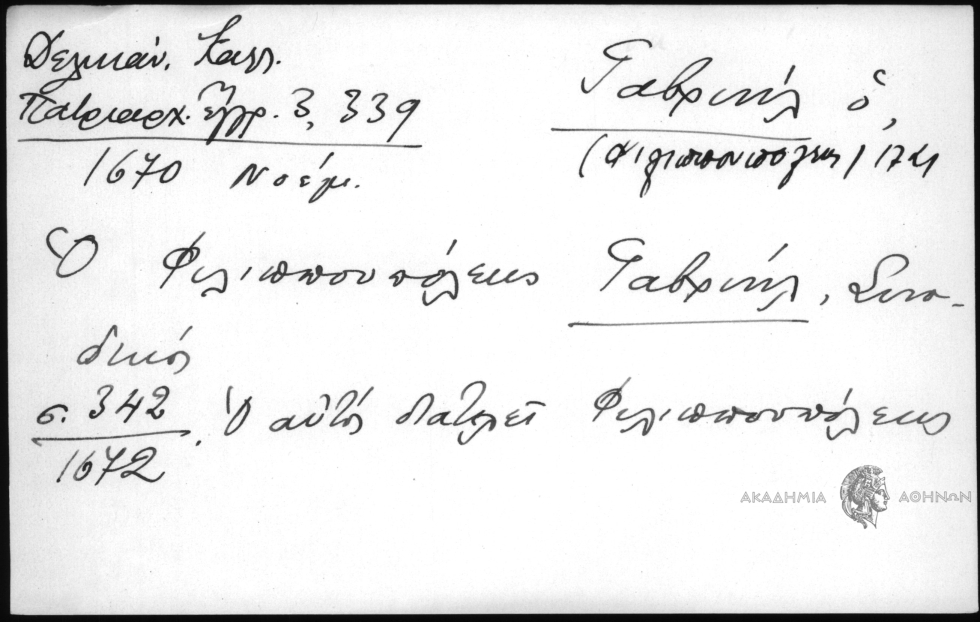 Δελικάν. Καλλ.
Πατριαρχ. ἔγγρ. 3, 339
1670 Νοέμ.
Γαβριήλ ὁ,
(Φιλιππουπόλεως)
Ὁ Φιλιππουπόλεως Γαβριήλ, Συνο-
δικός
σ. 342
1672
. Ὁ αὐτός διατελεῖ Φιλιππουπόλεως
ΑΚΑΔΗΜΙΑ ΑΘΗΝΩΝ